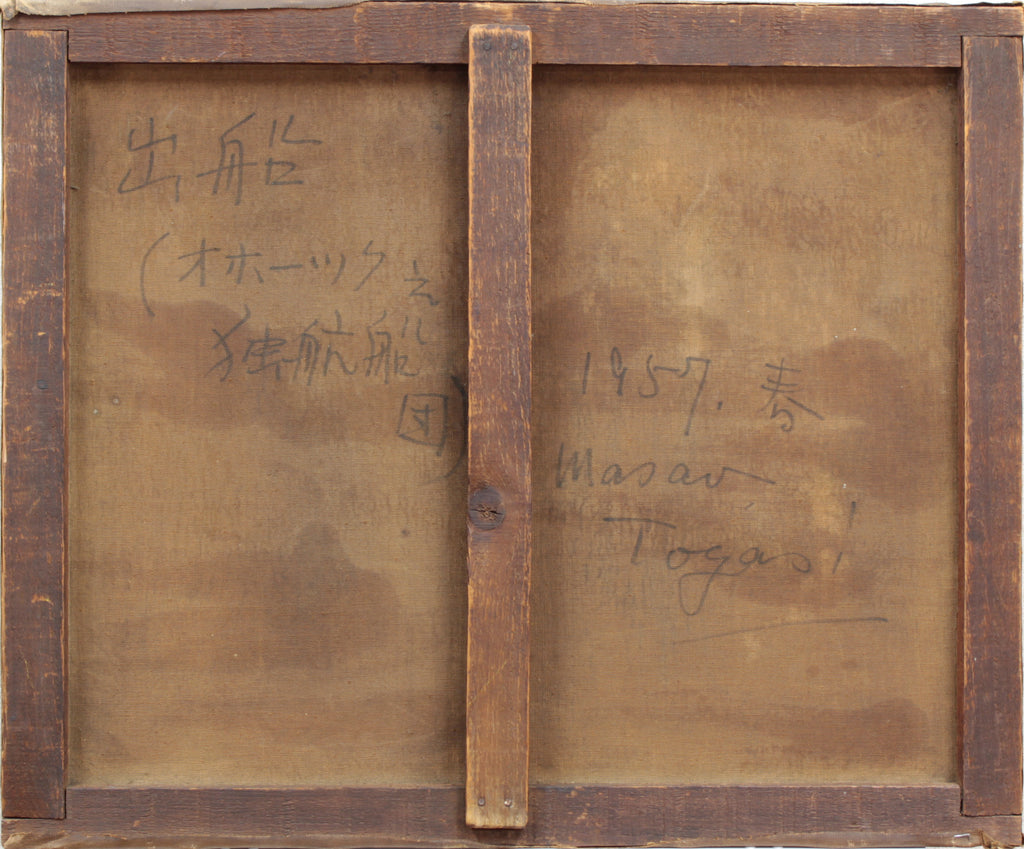 出船
(オホーツク云
独航船
団)
1957. 春
Masao
Togasi